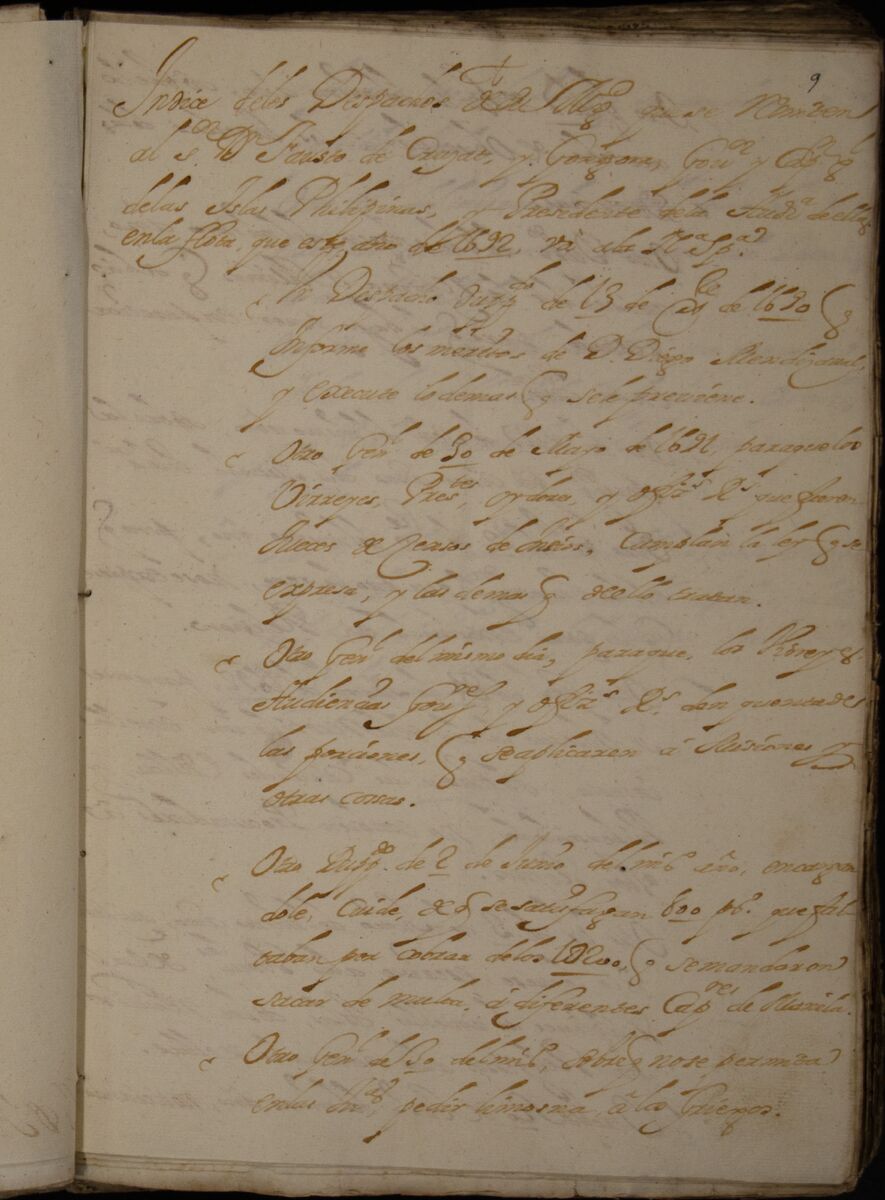 9
Indice de los Despachos de S Mg.d que se remiten
al S.or Dn Fausto de Cruzat, y Gongora, Gou.or y Cap.n g.
de las Islas Philipinas, y Presidente de la Aud.a de ellas
en la flota, que este año de 1692, vá a la N.a Sp.a
Un Despacho dup.do de 13 de de 1690 q
Informe los meritos de D. Diego
y execute lo demas q se le previene.
Otro Gen.l de 30 de Mayo de 1691, para que los
Virreyes, Pres.tes, oydores, y ofiz.s R.s que fueren
Jueces de Censos de Indios, Cumplan la ley q se
expresa, y las demas q de ello tratan.
Otro Gen.l del mismo dia, para que, los Virreyes
Audiencias Gou.res y ofiz.s R.s den quenta de
las porciones, q se aplicaren á Misiones y
otras cosas.
Otro Dup.do de 2 de Junio del mis.o año, encargan
dole, Cuide, de q se satisfagan 800 ps. que fal
taban por cobrar de los q se mandaron
sacar de multa, á diferentes Cap.nes de Manila.
Otro Gen.l de del mis.o, sobre q no se permita
en las In.s pedir limosna, a los Griegos.